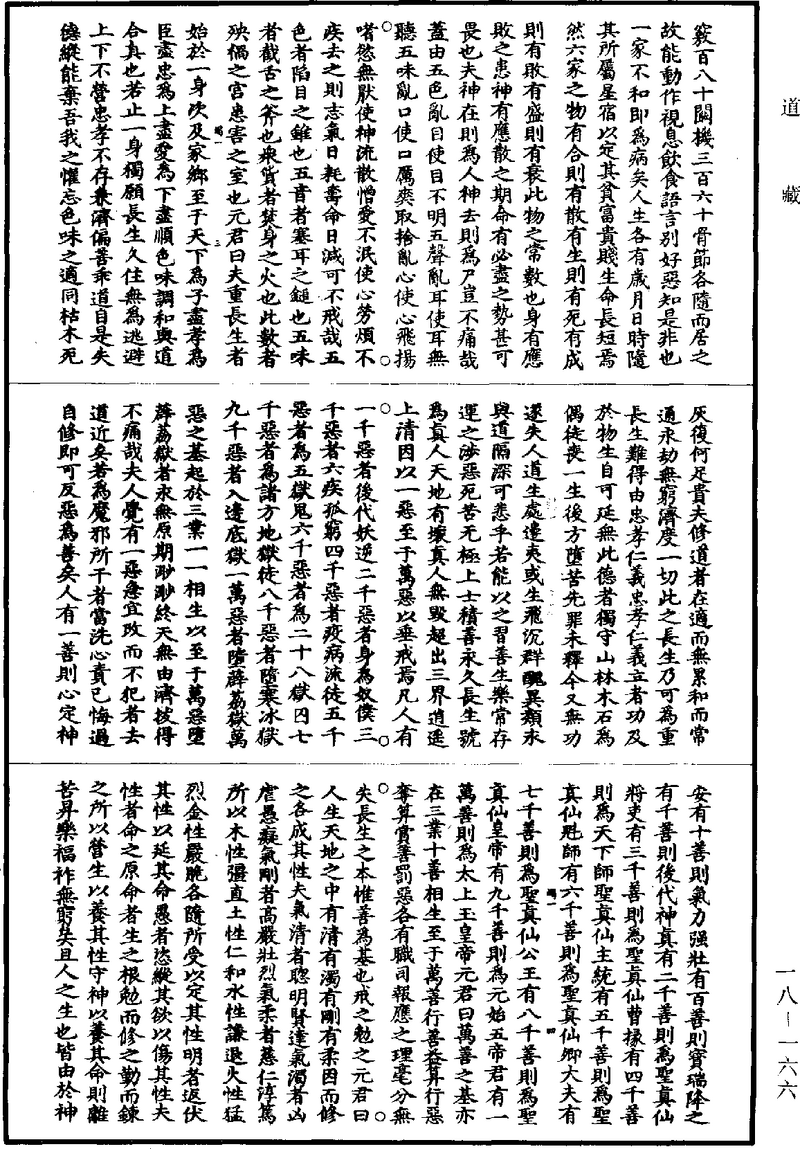 道藏
竅百八十關機三百六十骨節各隨而居之
故能動作視息飲食語言別好惡知是非也
一家不和即為病矣人生各有歲月日時隨
其所屬星宿以定其貧富貴賤生命長短焉
然六家之物有合則有散有生則有死有成
則有敗有盛則有衰此物之常數也身有應
敗之患神有應散之期命有必盡之勢甚可
畏也夫神在則為人神去則為尸豈不痛哉
蓋由五色亂目使目不明五聲亂耳使耳無
聽五味亂口使口厲爽取捨亂心使心飛揚
嗜慾無厭使神流散憎愛不泯使心勞煩不
疾去之則志氣日耗壽命日減可不戒哉五
色者陷目之錐也五音者塞耳之鎚也五味
者截舌之斧也眾貨者焚身之火也此數者
殃禍之宮患害之室也元君曰夫重長生者
始於一身次及家鄉至于天下為子盡孝為
臣盡忠為上盡愛為下盡順色味調和與道
合真也若止一身獨願長生久住無為逃避
上下不營忠孝不存兼濟偏善乖道自是失
德縱能棄吾我之懼忘色味之適同枯木死
灰復何足貴夫修道者在適而無累和而常
通永劫無窮濟度一切此之長生乃可為重
長生難得由忠孝仁義忠孝仁義立者功及
於物生自可延無此德者獨守山林木石為
偶徒喪一生後方墮苦先罪未釋今又無功
遂失人道生處邊夷或生飛沉群醜異類永
與道隔深可悉乎若能以之習善生樂常存
運之涉惡死苦无極上士積善永久長生號
為真人天地有壞真人無毀超出三界逍遙
上清因以一惡至于萬惡以垂戒焉凡人有
一千惡者後代妖逆二千惡者身為奴僕三
千惡者六疾孤窮四千惡者疫病流徒五千
惡者為五獄鬼六千惡者為二十八獄囚七
千惡者為諸方地獄徒八千惡者墮寒冰獄
九千惡者入邊底獄一萬惡者墮薜荔獄萬
惡之基起於三業一一相生以至于萬惡墮
薜荔獄者永無原期渺渺終天無由濟拔得
不痛哉夫人覺有一惡急宜改而不犯者去
道近矣若為魔邪所干者當洗心責己悔過
自修即可反惡為善矣人有一善則心定神
安有十善則氣力强壯有百善則寶瑞降之
有千善則後代神真有二千善則為聖真仙
將吏有三千善則為聖真仙曹掾有四千善
則為天下師聖真仙主統有五千善則為聖
真仙魁師有六千善則為聖真仙卿大夫有
七千善則為聖真仙公王有八千善則為聖
真仙皇帝有九千善則為元始五帝君有一
萬善則為太上玉皇帝元君曰萬善之基亦
在三業十善相生至于萬善行善益算行惡
奪算賞善罰惡各有職司報應之理毫分無
失長生之本惟善為基也戒之勉之元君曰
人生天地之中有清有濁有剛有柔因而修
之各成其性夫氣清者聰明賢達氣濁者凶
虐愚癡氣剛者高嚴壯烈氣柔者慈仁淳篤
所以木性彊直土性仁和水性謙退火性猛
烈金性嚴脆各隨所受以定其性明者返伏
其性以延其命愚者恣縱其欲以傷其性夫
性者命之原命者生之根勉而修之勤而鍊
之所以營生以養其性守神以養其命則離
苦昇樂福祚無窮矣且人之生也皆由於神
一八—一六六